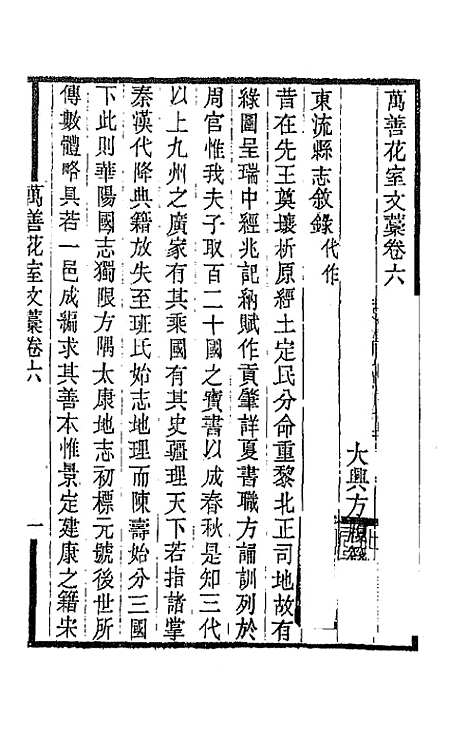 萬善花室文藁卷六
大興方履籛
東流縣志敘錄代作
昔在先王奠壤析原經土定民分命重黎北正司地故有
綠圖呈瑞中經兆記納賦作貢肇詳夏書職方誦訓列於
周官惟我夫子取百二十國之寶書以成春秋是知三代
以上九州之廣家有其乘國有其史疆理天下若指諸掌
秦漢代降典籍放失至班氏始志地理而陳壽始分三國
下此則華陽國志獨限方隅太康地志初標元號後世所
傳數體略具若一邑成編求其善本惟景定建康之籍朱
萬善花室文藁卷六
一